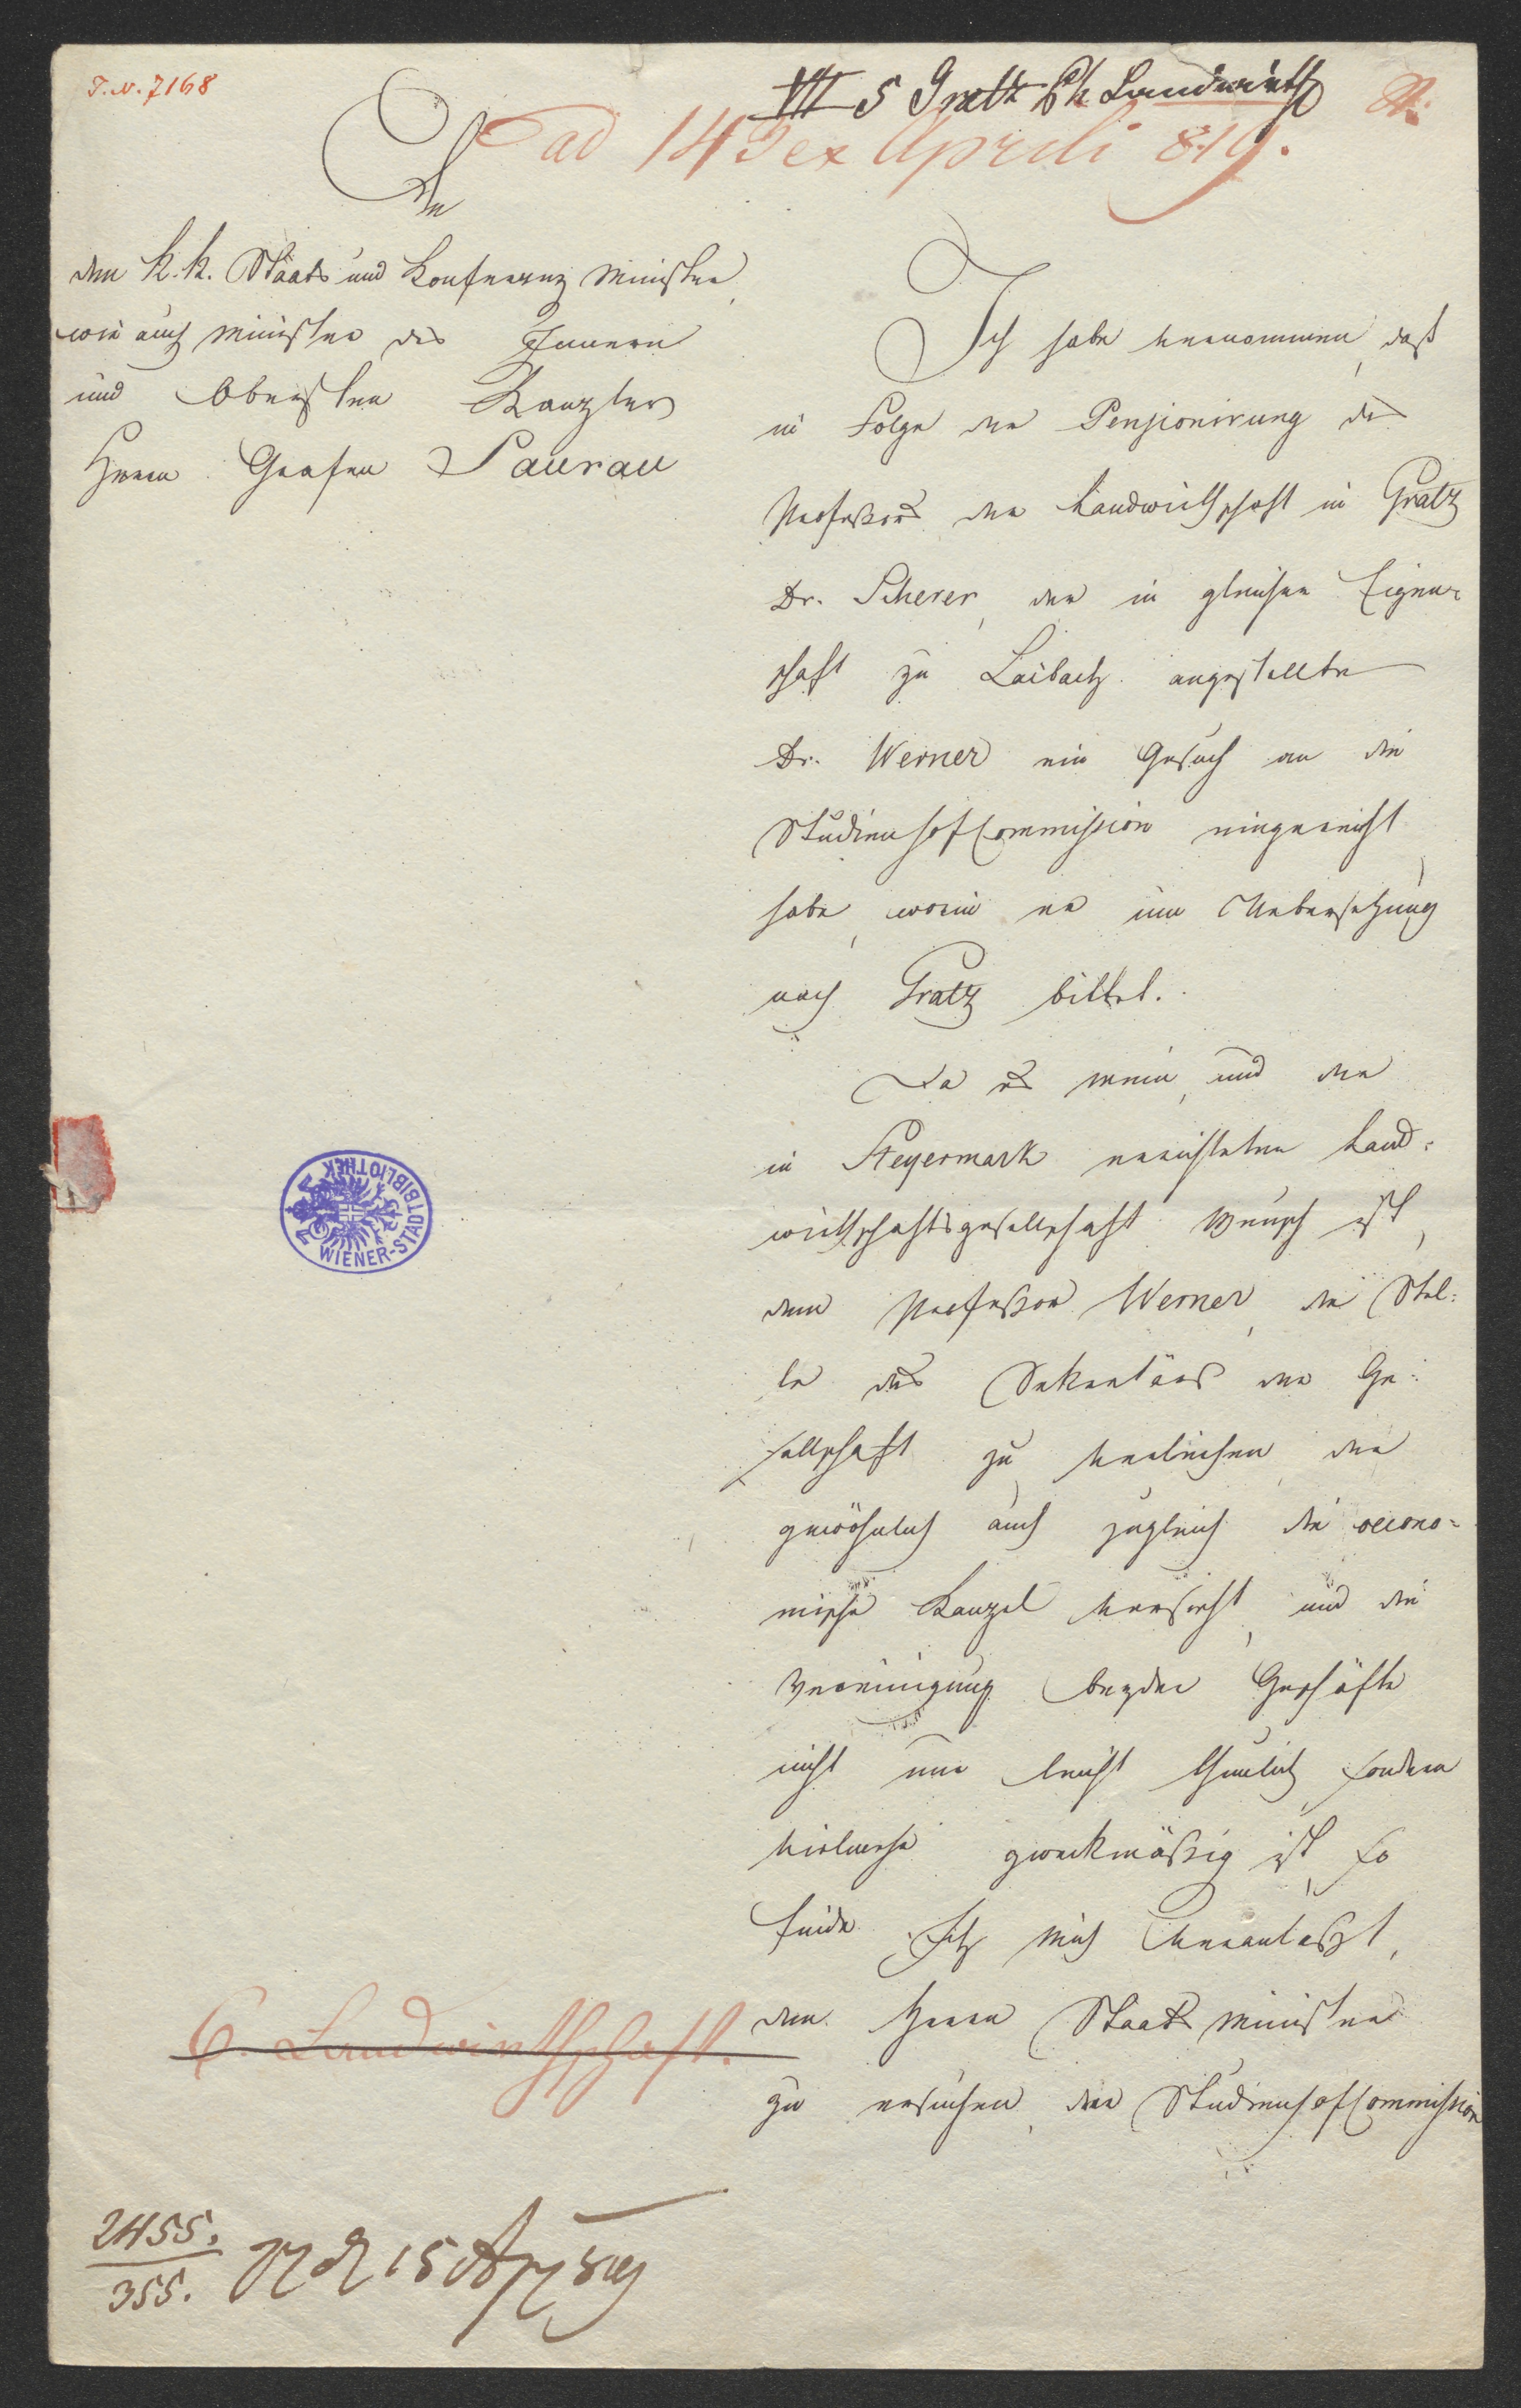 I.N. 7168
VII 5 Gratz Ph Landwirths
ad 143 ex Aprili 819.
An
den k. k. Staats und Konferenz Minister,
wie auch Minister des Innern
und Obersten Kanzler
Herrn Grafen Saurau
Ich habe vernommen, daß
in Folge der Pensionirung des
Professors der Landwirthschaft in Gratz
Dr. Scherer, der in gleicher Eigen-
schaft zu Laibach angestellte
Dr. Werner ein Gesuch an die
StudienhofCommission eingereicht
habe, worin er um Uebersetzung
nach Gratz bittet.
Da es mein, und der
in Steyermark errichteten Land-
wirthschaftsgesellschaft Wunsch ist,
dem Professor Werner, die Stel-
le des Sekretärs der Ge-
sellschaft zu verleihen, der
gewöhnlich auch zugleich die oecono-
mische Kanzel versieht, und die
Vereinigung beyder Geschäfte
nicht nur leicht thunlich, sondern
vielmehr zweckmäßig ist, so
finde Ich mich veranlaßt,
den Herrn Staats Minister
zu ersuchen, der StudienhofCommission
6. Landwirthschaft.
2455.
355.
15 Apr 819
WIENER-STADTBIBLIOTHEK